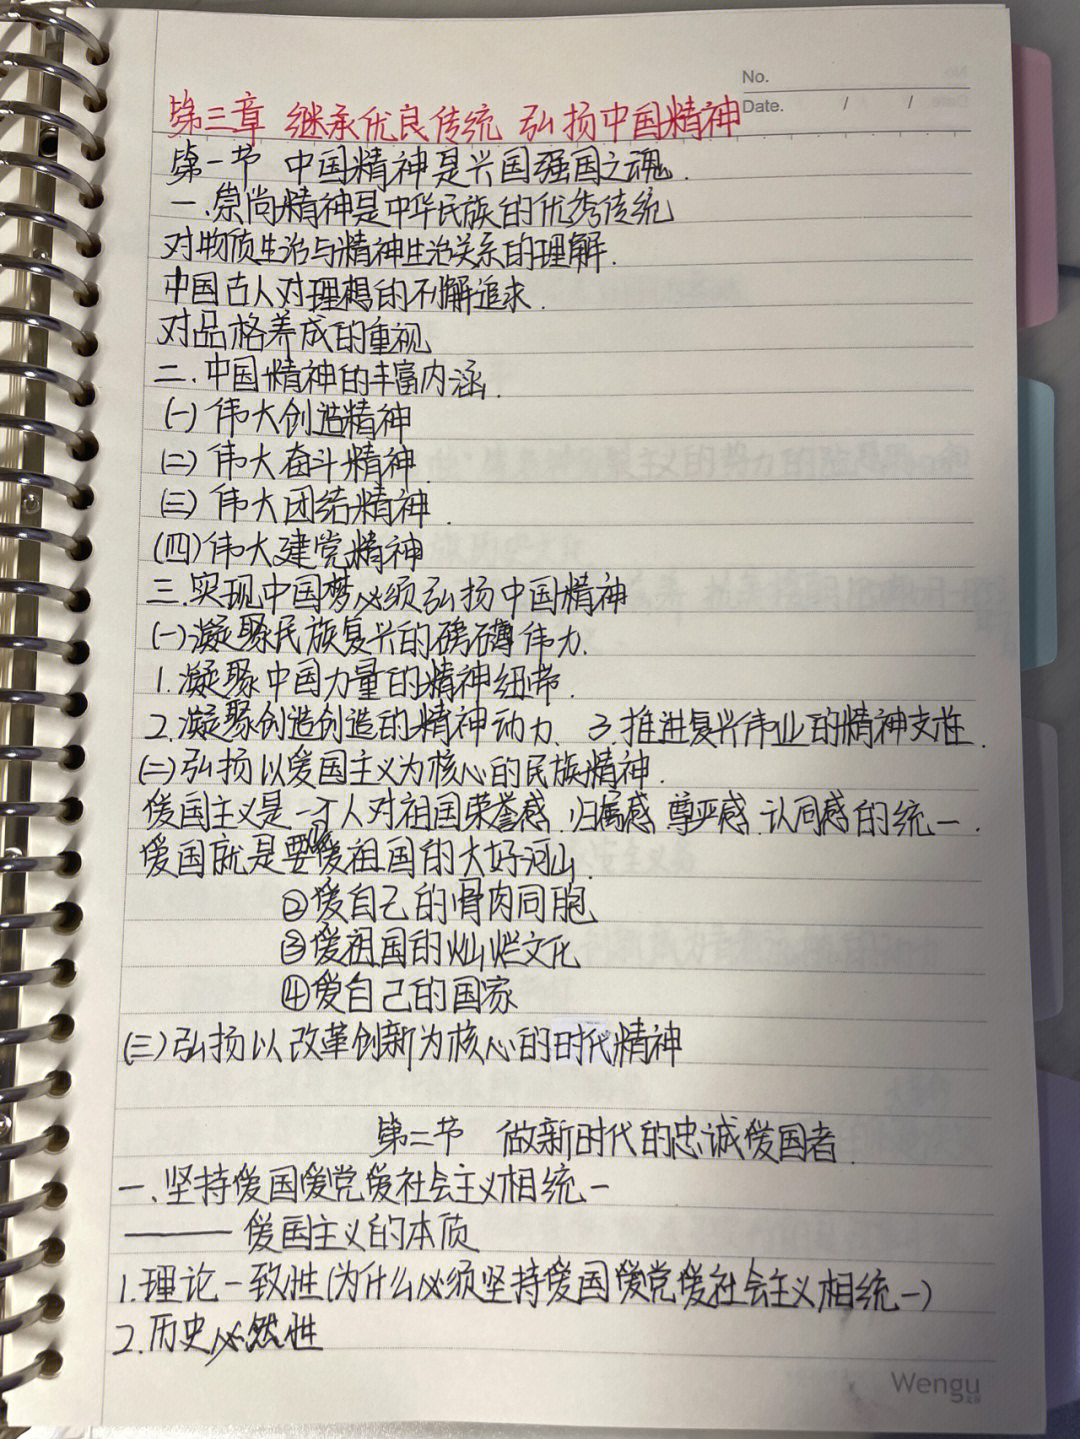 No.
Date. / /
第三章 继承优良传统 弘扬中国精神
第一节 中国精神是兴国强国之魂.
一.崇尚精神是中华民族的优秀传统
对物质生活与精神生活关系的理解.
中国古人对理想的不懈追求.
对品格养成的重视
二.中国精神的丰富内涵.
(一)伟大创造精神
(二)伟大奋斗精神.
(三)伟大团结精神.
(四)伟大建党精神
三.实现中国梦必须弘扬中国精神
(一)凝聚民族复兴的磅礴伟力.
1.凝聚中国力量的精神纽带.
2.凝聚创造创造的精神动力、3推进复兴伟业的精神支柱.
(二)弘扬以爱国主义为核心的民族精神.
爱国主义是一个人对祖国荣誉感.归属感.尊严感.认同感的统一.
爱国就是要爱祖国的大好河山.
②爱自己的骨肉同胞
③爱祖国的灿烂文化
④爱自己的国家
(三)弘扬以改革创新为核心的时代精神
第二节 做新时代的忠诚爱国者.
一、坚持爱国爱党爱社会主义相统一
——爱国主义的本质
1.理论一致性(为什么必须坚持爱国爱党爱社会主义相统一)
2.历史必然性
Wengu